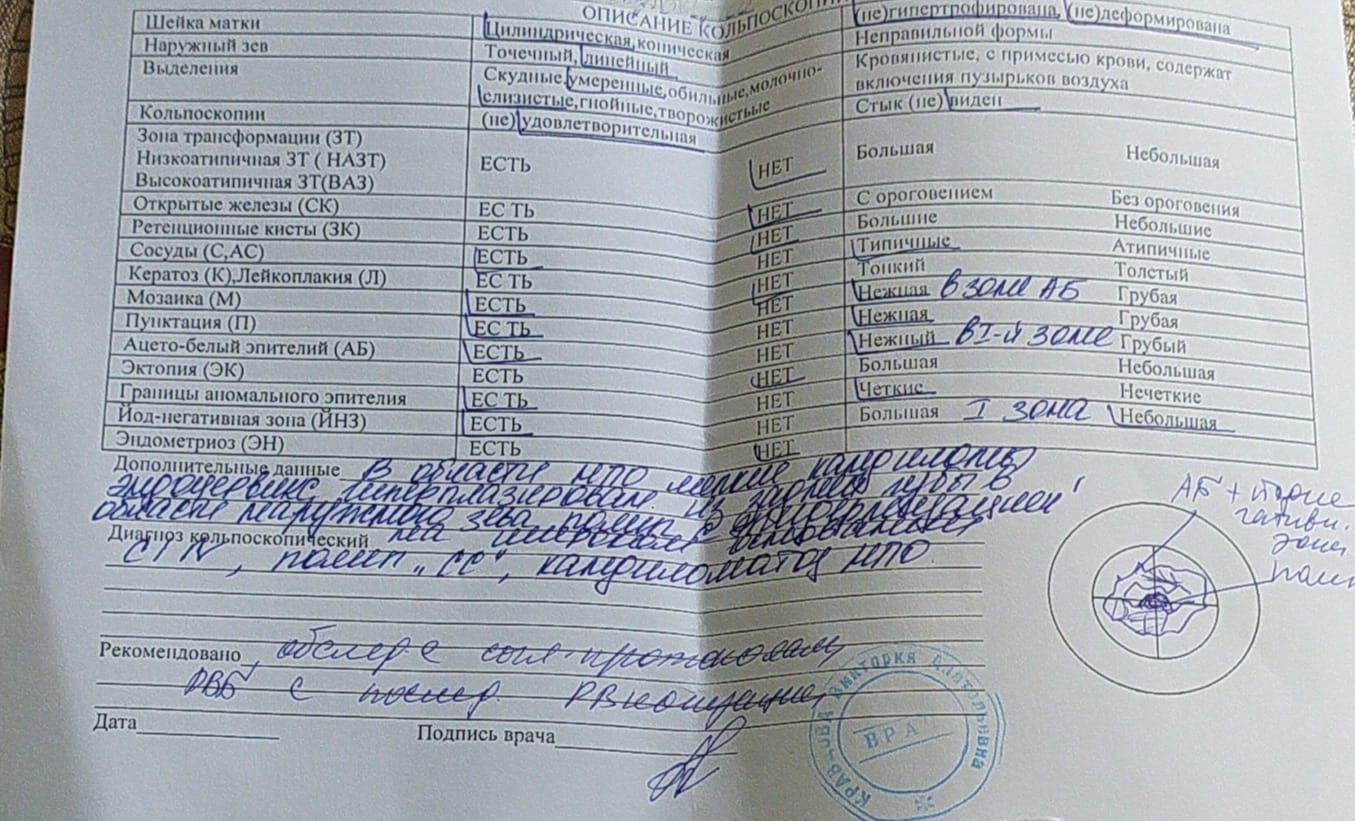 ОПИСАНИЕ КОЛЬПОСКОПИ
Шейка матки Цилиндрическая, коническая (не)гипертрофирована, (не)деформирована
Наружный зев Точечный, линейный Неправильной формы
Выделения Скудные, умеренные, обильные, молочно- Кровянистые, с примесью крови, содержат
слизистые, гнойные, творожистые включения пузырьков воздуха
Кольпоскопии (не) удовлетворительная Стык (не) виден
Зона трансформации (ЗТ)
Низкоатипичная ЗТ ( НАЗТ) ЕСТЬ НЕТ Большая Небольшая
Высокоатипичная ЗТ(ВАЗ)
Открытые железы (СК) ЕС ТЬ НЕТ С ороговением Без ороговения
Ретенционные кисты (ЗК) ЕСТЬ НЕТ Большие Небольшие
Сосуды (С,АС) ЕСТЬ НЕТ Типичные Атипичные
Кератоз (К),Лейкоплакия (Л) ЕС ТЬ НЕТ Тонкий Толстый
Мозаика (М) ЕСТЬ НЕТ Нежная в зоне АБ Грубая
Пунктация (П) ЕС ТЬ НЕТ Нежная Грубая
Ацето-белый эпителий (АБ) ЕСТЬ НЕТ Нежный в I-й зоне Грубый
Эктопия (ЭК) ЕСТЬ НЕТ Большая Небольшая
Границы аномального эпителия ЕС ТЬ НЕТ Четкие Нечеткие
Йод-негативная зона (ЙНЗ) ЕСТЬ НЕТ Большая I зона Небольшая
Эндометриоз (ЭН) ЕСТЬ НЕТ
Дополнительные данные В области НПО мелкие кандиломы
эндоцервикс гиперплазирован. из задней губы в
области наружного зева полип с
Диагноз кольпоскопический на широком основании
CIN, полип "СС", кандиломатоз НПО.
АБ +
зона
Рекомендовано обслед-е согл. протоколам,
РВБ с послед.
Дата Подпись врача
КРАВЦОВА ВИКТОРИЯ АНАТОЛЬЕВНА
ВРАЧ